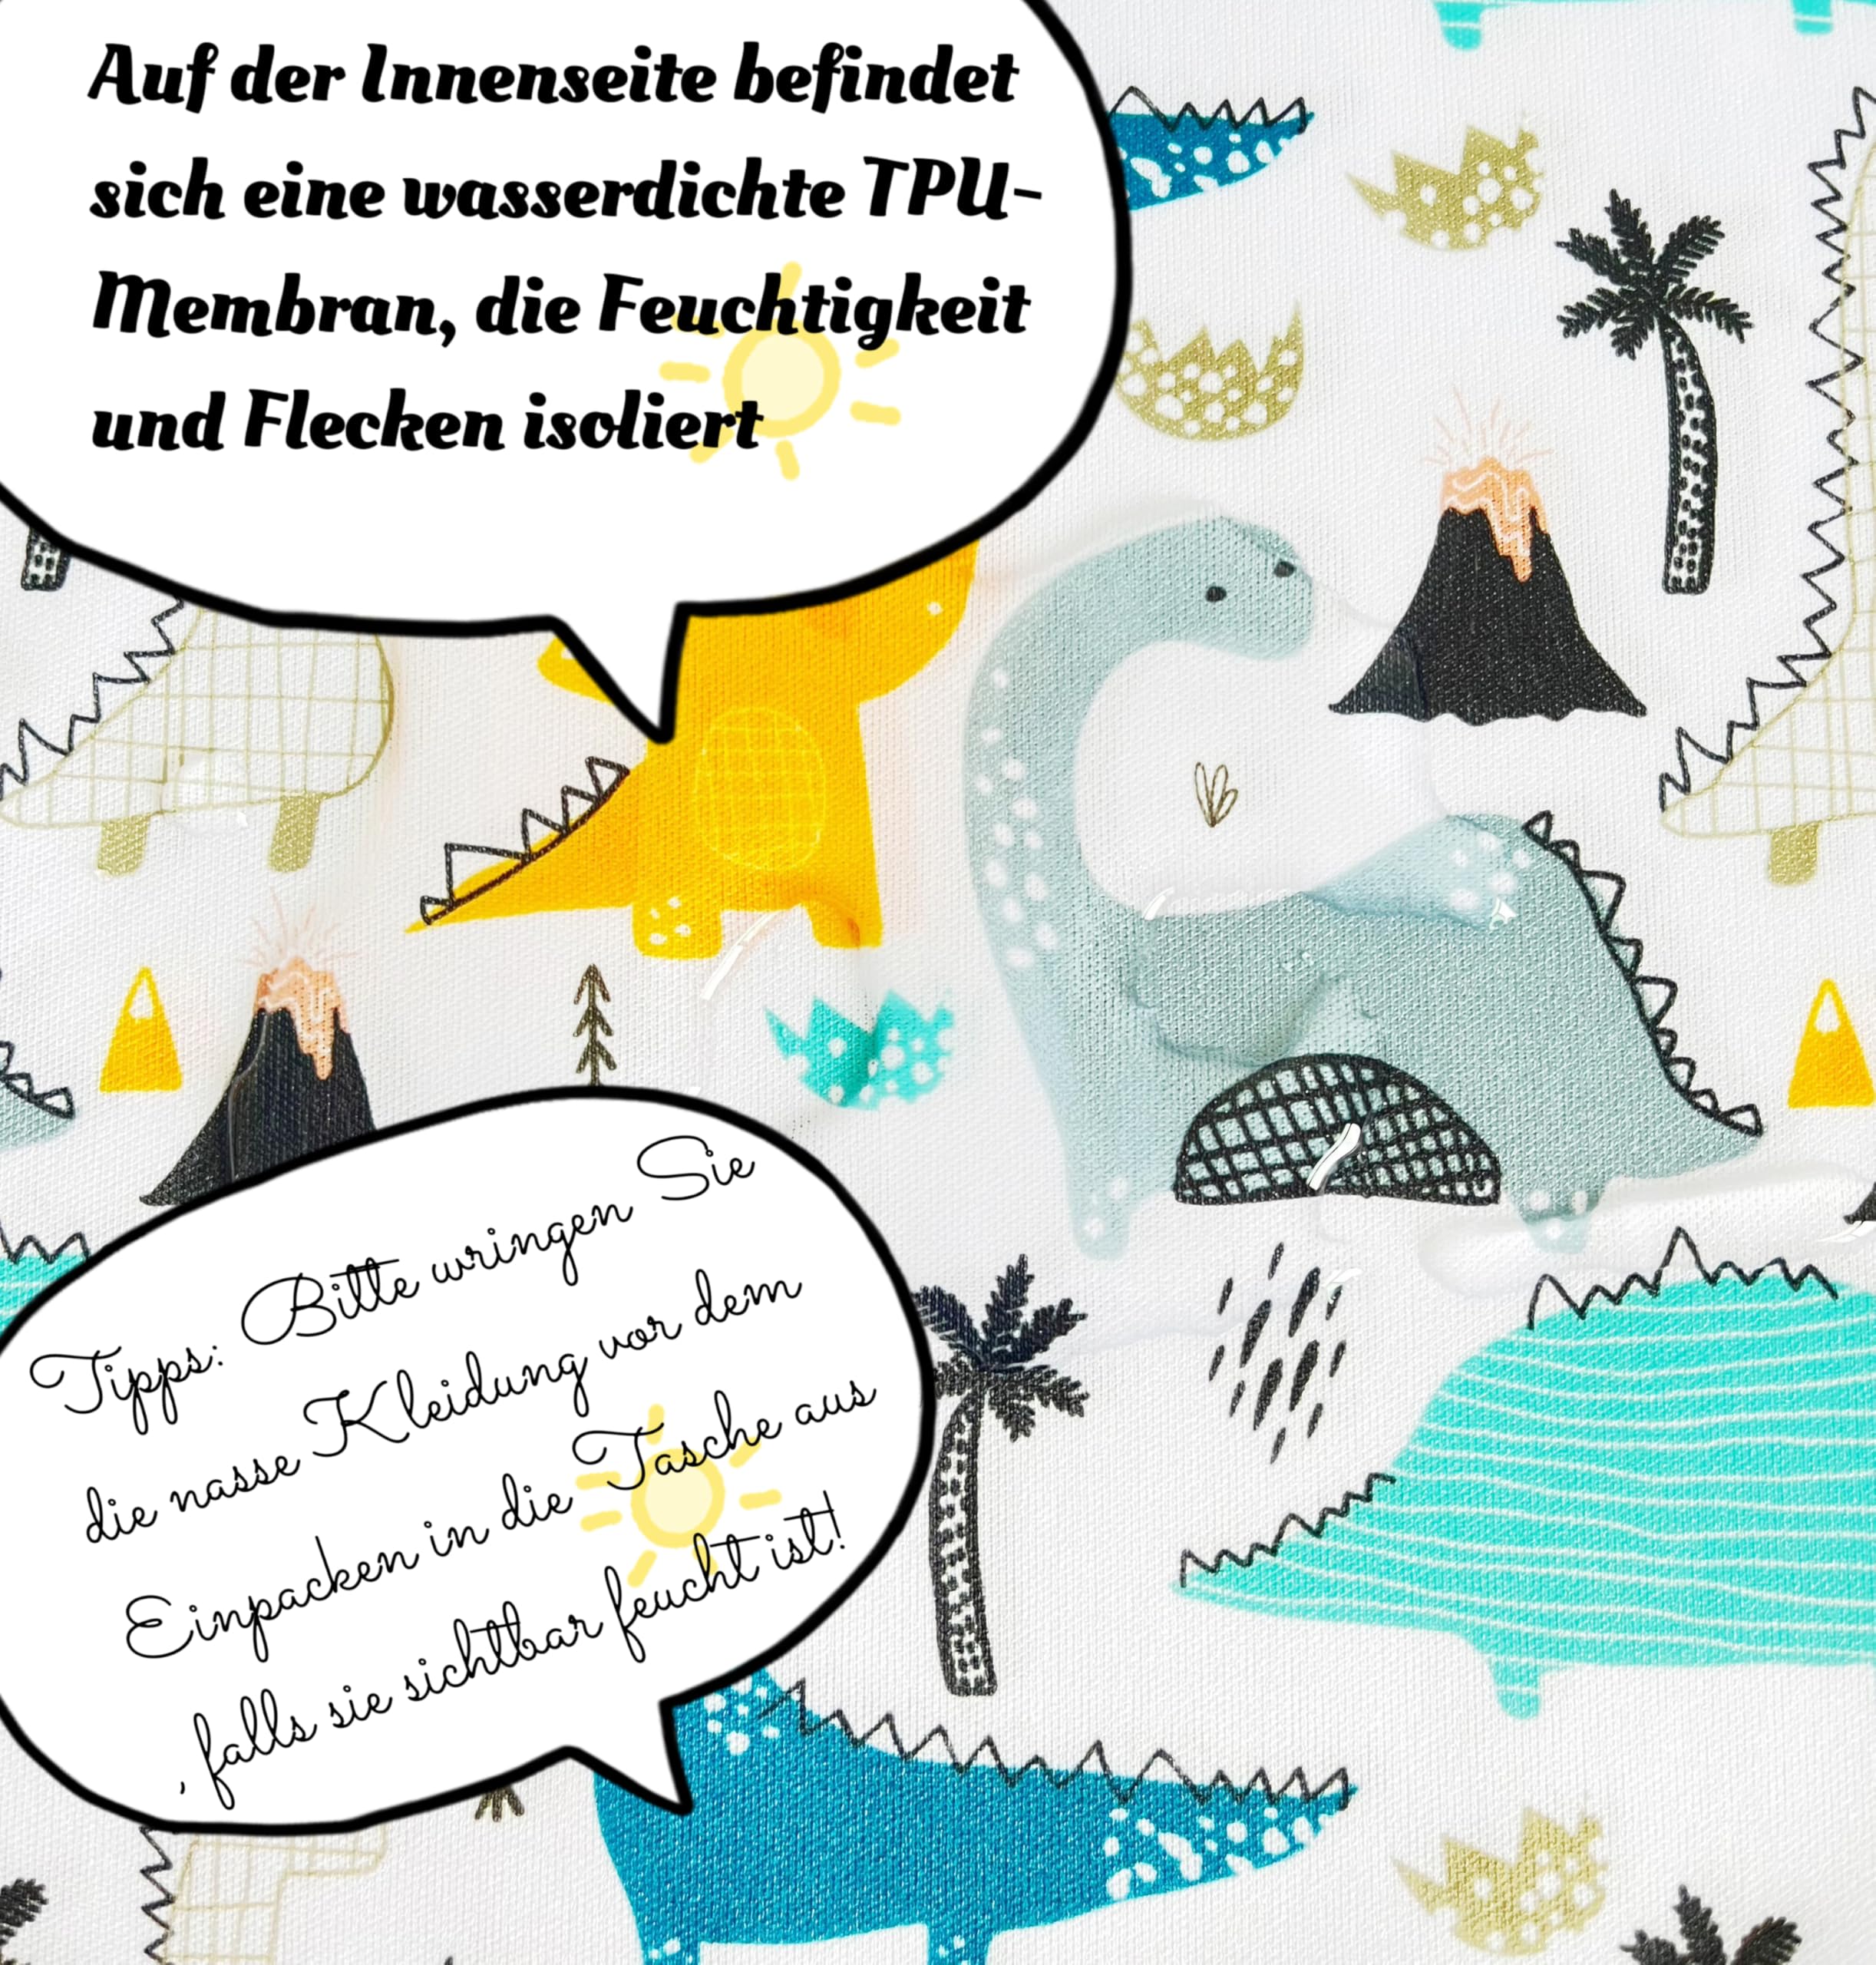 Auf der Innenseite befindet
sich eine wasserdichte TPU-
Membran, die Feuchtigkeit
und Flecken isoliert
Tipps: Bitte wringen Sie
die nasse Kleidung vor dem
Einpacken in die Tasche aus
, falls sie sichtbar feucht ist!